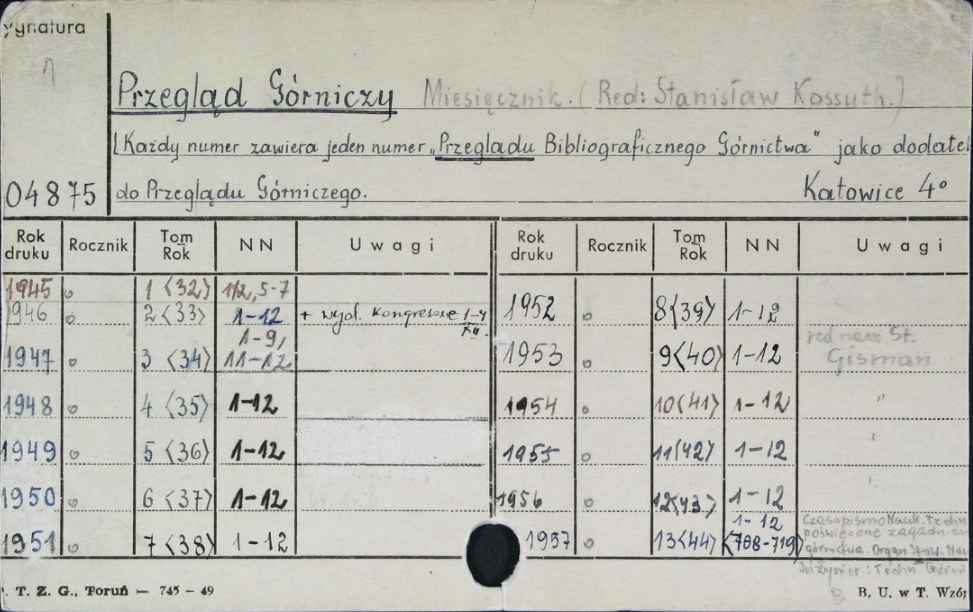 ygnatura
Przegląd Górniczy Miesięcznik. (Red: Stanisław Kossuth.)
[Każdy numer zawiera jeden numer „Przeglądu Bibliograficznego Górnictwa" jako dodate
04875 do Przeglądu Górniczego. Katowice 4°
Rok druku Rocznik Tom Rok NN Uwagi Rok druku Rocznik Tom Rok NN Uwagi
1945 1 <32> 1/2, 5-7
946 2 <33> 1-12 + wyd. Kongresowe
1947 3 <34> 1-9, 11-12
1948 4 <35> 1-12
1949 5 <36> 1-12
1950 6 <37> 1-12
1951 7 <38> 1-12
1952 8 <39> 1-12
1953 9 <40> 1-12 St. Gisman
1954 10 <41> 1-12 "
1955 11 <42> 1-12
1956 12 <43> 1-12
1957 13 <44> 1-12 <708-719> Czasopismo Nauk. Techn
poświęcone zagadn
górnictwa. Organ
Inżynier. Techn. Górn
. T. Z. G., Toruń — 745 - 49
B. U. w T. Wzór